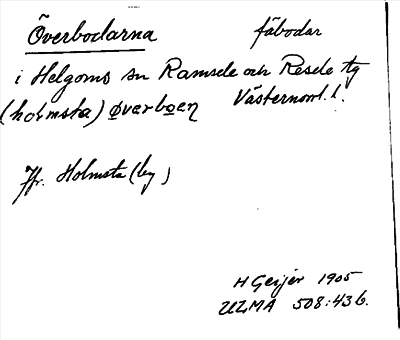 Överbodarna fäbodar
i Helgums sn Ramsele och Resele tg
(holmsta) øverboen Västernorrl. l.
Jfr. Holmsta (by)
H Geijer 1905
ULMA 508:436.